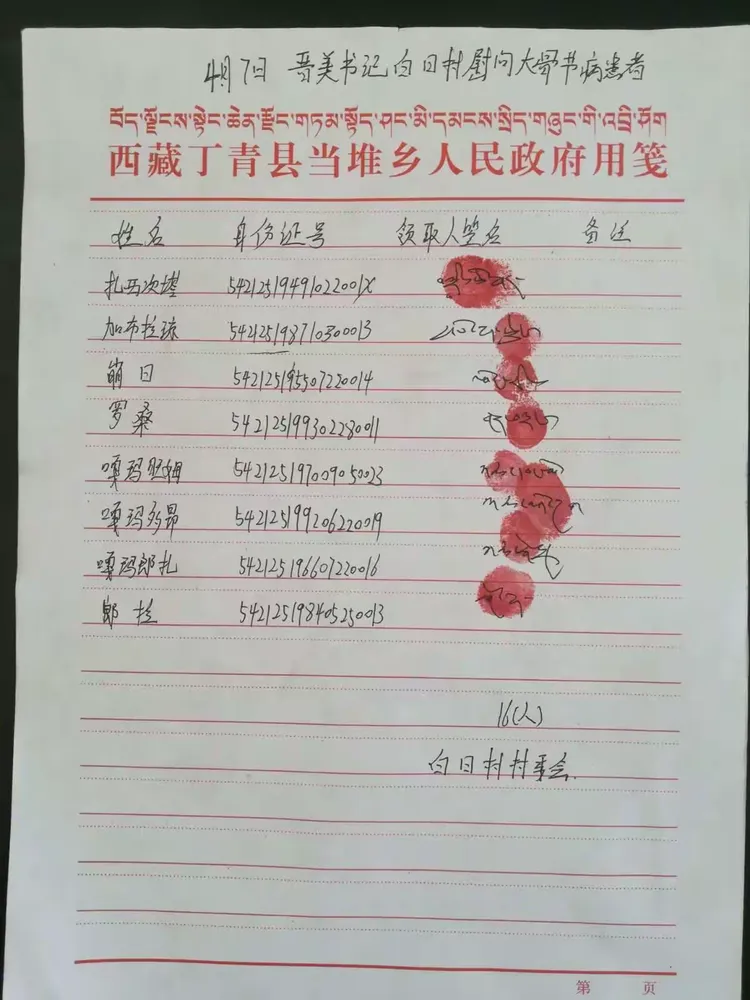 4月7日 晋美书记白日村慰问大骨节病患者
བོད་ལྗོངས་སྟེང་ཆེན་རྫོང་གཏམ་སྟོད་ཤང་མི་དམངས་སྲིད་གཞུང་གི་འབྲི་ཤོག
西藏丁青县当堆乡人民政府用笺
姓名 身份证号 领取人签名 备注
扎西次塔 54212519491022001X
加布拉琼 542125198710300013
崩日 542125195507220014
罗桑 542125199302280011
嘎玛旺姆 542125197009050023
嘎玛多昂 542125199206220019
嘎玛郎扎 542125196607220016
郎拉 542125198405250013
16(人)
白日村村委会
第 页